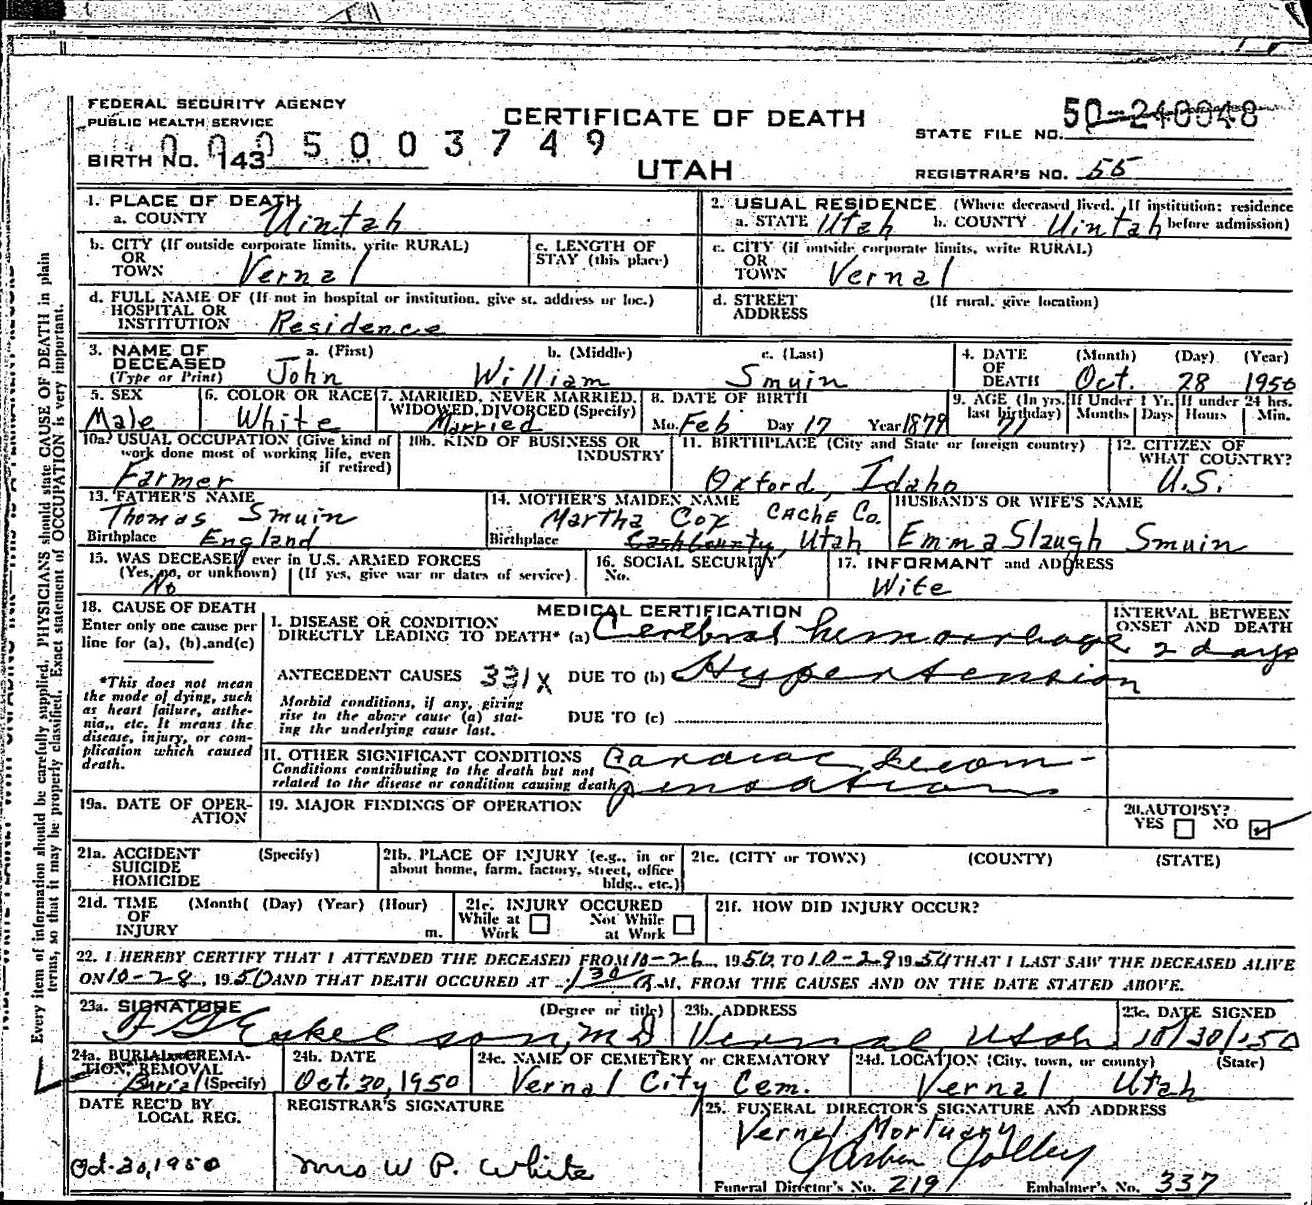 FEDERAL SECURITY AGENCY
PUBLIC HEALTH SERVICE
CERTIFICATE OF DEATH
STATE FILE NO. 50-240048
0005003749
BIRTH NO. 143
UTAH
REGISTRAR'S NO. 55
1. PLACE OF DEATH
a. COUNTY Uintah
2. USUAL RESIDENCE (Where deceased lived. If institution: residence before admission)
a. STATE Utah b. COUNTY Uintah
b. CITY (If outside corporate limits, write RURAL) OR TOWN Vernal
c. LENGTH OF STAY (this place)
c. CITY (if outside corporate limits, write RURAL) OR TOWN Vernal
d. FULL NAME OF (If not in hospital or institution, give st. address or loc.) HOSPITAL OR INSTITUTION Residence
d. STREET ADDRESS (If rural, give location)
3. NAME OF DECEASED (Type or Print) a. (First) John b. (Middle) William c. (Last) Smuin
4. DATE OF DEATH (Month) (Day) (Year) Oct. 28 1950
5. SEX Male
6. COLOR OR RACE White
7. MARRIED, NEVER MARRIED, WIDOWED, DIVORCED (Specify) Married
8. DATE OF BIRTH Mo. Feb Day 17 Year 1879
9. AGE (In yrs. last birthday) 71 If Under 1 Yr. Months Days If under 24 hrs. Hours Min.
10a. USUAL OCCUPATION (Give kind of work done most of working life, even if retired) Farmer
10b. KIND OF BUSINESS OR INDUSTRY
11. BIRTHPLACE (City and State or foreign country) Oxford, Idaho
12. CITIZEN OF WHAT COUNTRY? U.S.
13. FATHER'S NAME Thomas Smuin
Birthplace England
14. MOTHER'S MAIDEN NAME Martha Cox
Birthplace Cash County, CACHE Co. Utah
HUSBAND'S OR WIFE'S NAME Emma Slaugh Smuin
15. WAS DECEASED ever in U.S. ARMED FORCES (Yes, no, or unknown) No (If yes, give war or dates of service)
16. SOCIAL SECURITY No.
17. INFORMANT and ADDRESS Wife
18. CAUSE OF DEATH
Enter only one cause per line for (a), (b), and (c)
*This does not mean the mode of dying, such as heart failure, asthenia,, etc. It means the disease, injury, or complication which caused death.
MEDICAL CERTIFICATION
INTERVAL BETWEEN ONSET AND DEATH
I. DISEASE OR CONDITION DIRECTLY LEADING TO DEATH* (a) Cerebral hemorrhage 2 days
ANTECEDENT CAUSES 331X DUE TO (b) Hypertension
Morbid conditions, if any, giving rise to the above cause (a) stating the underlying cause last.
DUE TO (c)
II. OTHER SIGNIFICANT CONDITIONS
Conditions contributing to the death but not related to the disease or condition causing death
Cardiac decompensation
19a. DATE OF OPERATION
19. MAJOR FINDINGS OF OPERATION
20. AUTOPSY? YES NO ✓
21a. ACCIDENT SUICIDE HOMICIDE (Specify)
21b. PLACE OF INJURY (e.g., in or about home, farm, factory, street, office bldg., etc.)
21c. (CITY or TOWN) (COUNTY) (STATE)
21d. TIME OF INJURY (Month( (Day) (Year) (Hour) m.
21e. INJURY OCCURED While at Work Not While at Work
21f. HOW DID INJURY OCCUR?
22. I HEREBY CERTIFY THAT I ATTENDED THE DECEASED FROM 10-26, 1950, TO 10-29 1950 THAT I LAST SAW THE DECEASED ALIVE
ON 10-28, 1950 AND THAT DEATH OCCURED AT 1:30 A.M, FROM THE CAUSES AND ON THE DATE STATED ABOVE.
23a. SIGNATURE (Degree or title) M.D.
23b. ADDRESS Vernal Utah
23c. DATE SIGNED 10/30/50
24a. BURIAL, CREMATION, REMOVAL (Specify) Burial
24b. DATE Oct. 30, 1950
24c. NAME OF CEMETERY or CREMATORY Vernal City Cem.
24d. LOCATION (City, town, or county) (State) Vernal Utah
DATE REC'D BY LOCAL REG. Oct. 30, 1950
REGISTRAR'S SIGNATURE Mrs W P. White
25. FUNERAL DIRECTOR'S SIGNATURE AND ADDRESS
Vernal Mortuary
Funeral Director's No. 219 Embalmer's No. 337
Every item of information should be carefully supplied. PHYSICIANS should state CAUSE OF DEATH in plain
terms, so that it may be properly classified. Exact statement of OCCUPATION is very important.